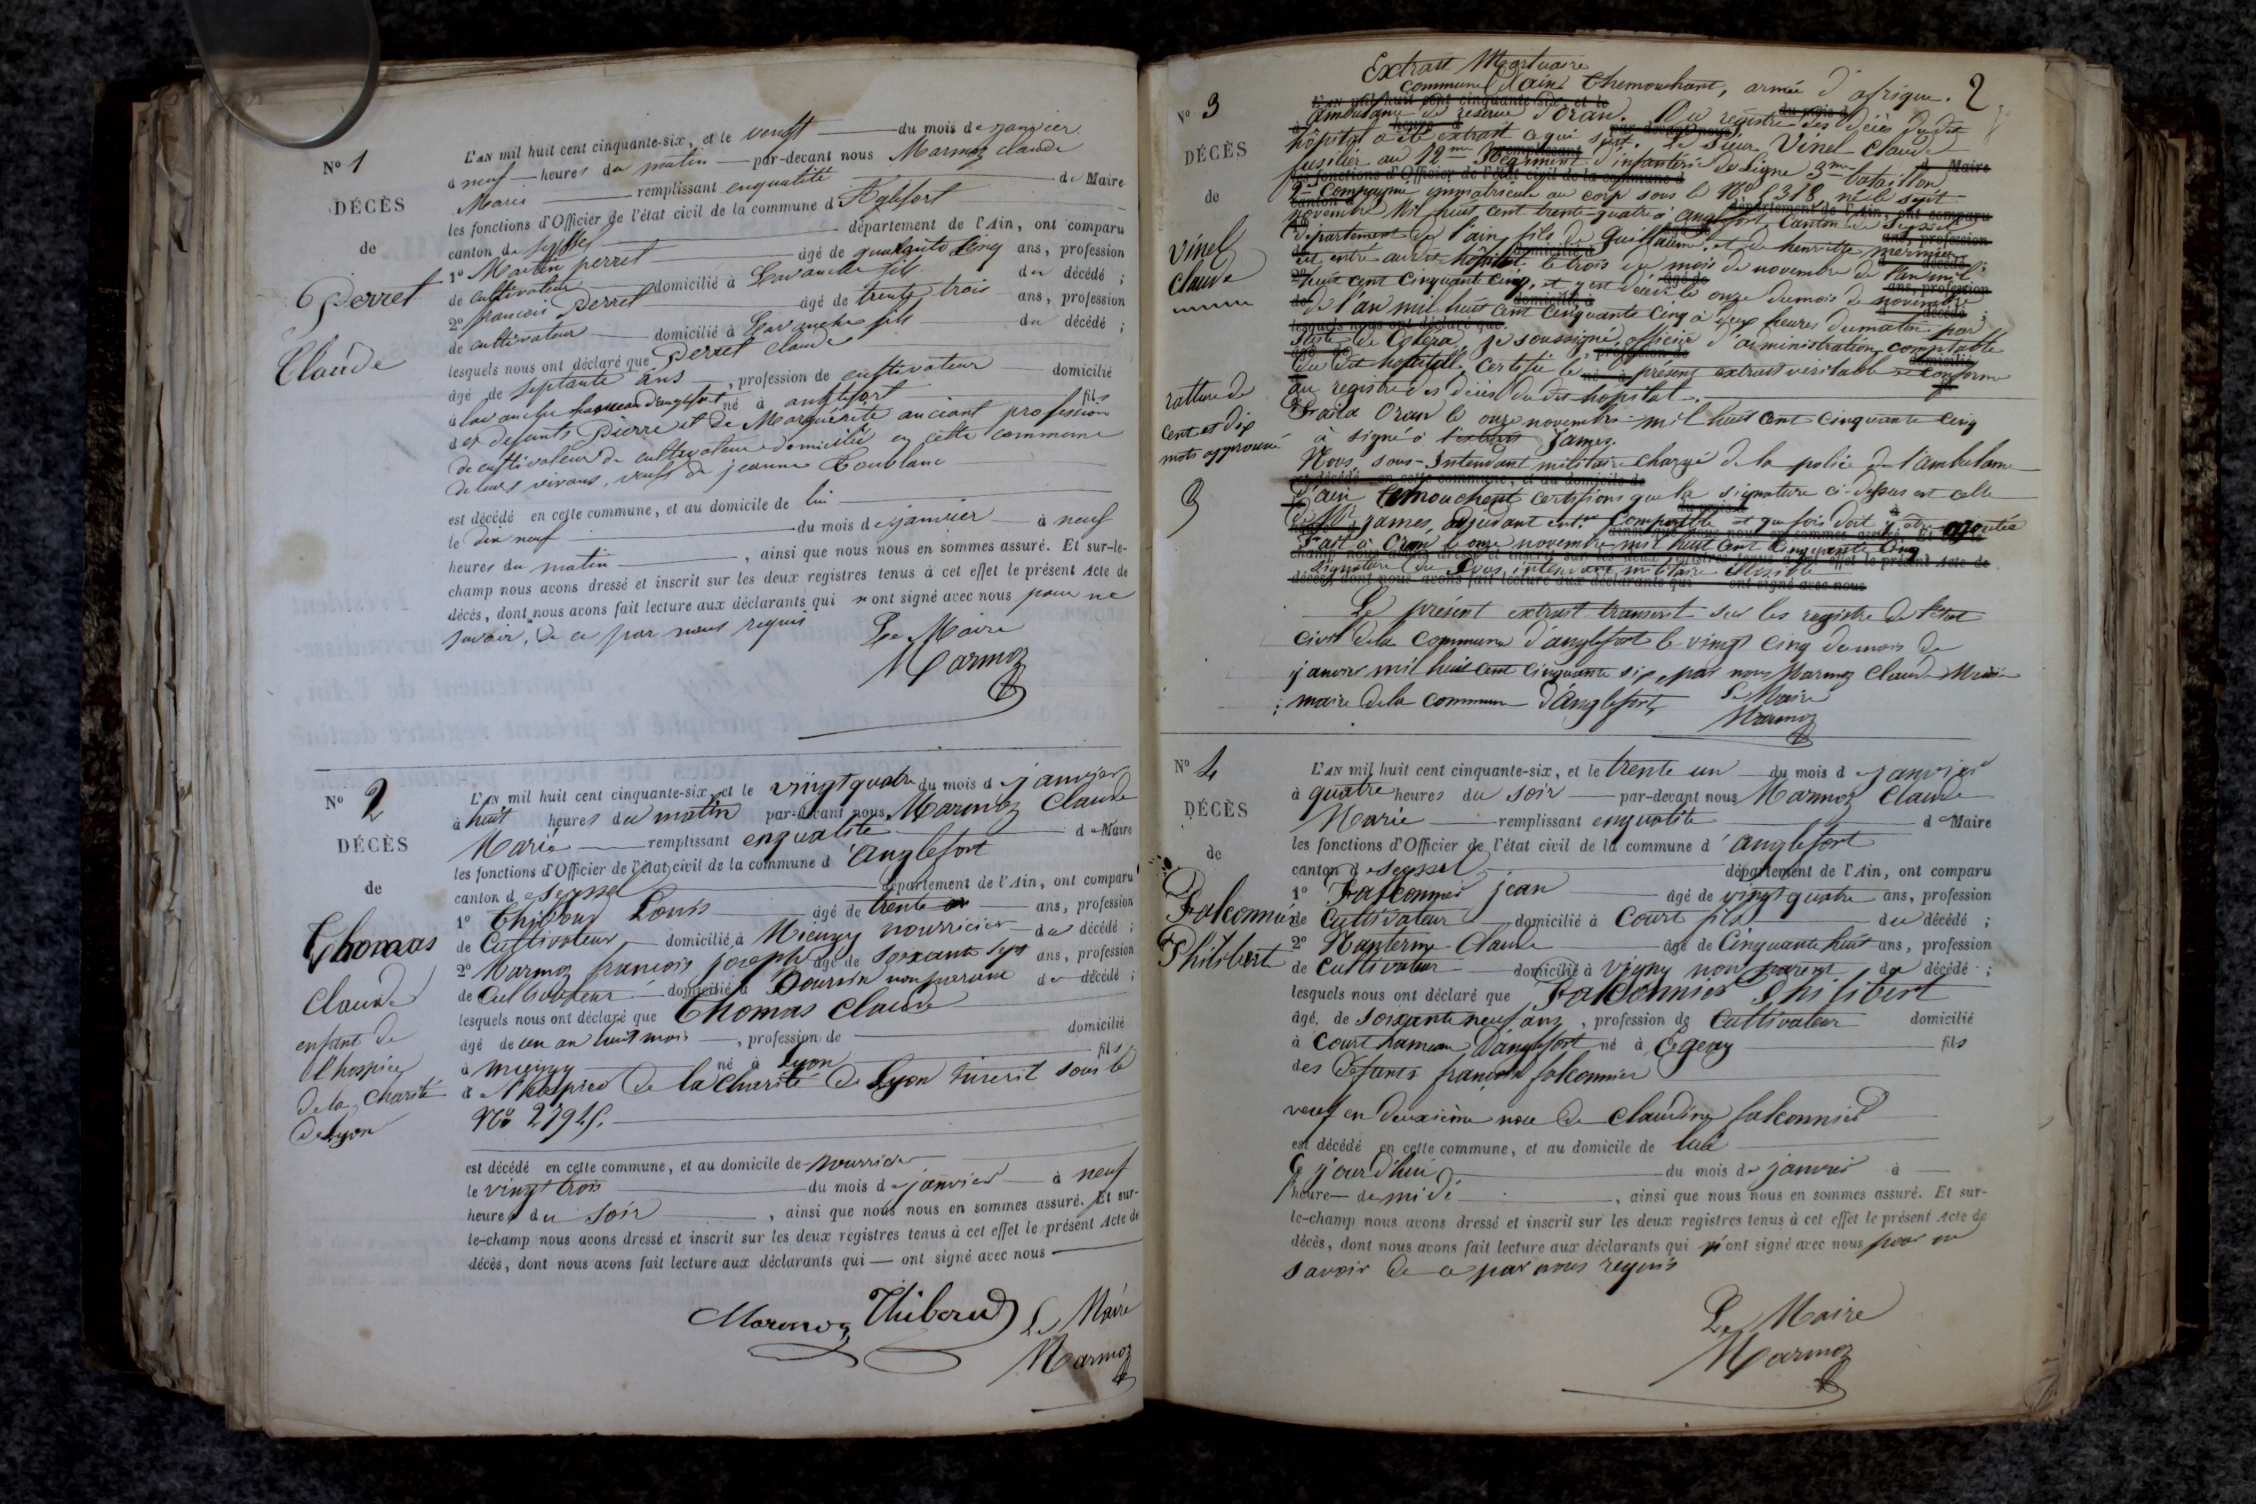 N° 1
DÉCÈS
de
Perret
Claude
L'AN mil huit cent cinquante-six, et le vingt du mois de janvier
à neuf heures du matin par-devant nous Marmoz claude
Marie remplissant enqualité de Maire
les fonctions d'Officier de l'état civil de la commune d'Anglefort
canton de Seyssel département de l'Ain, ont comparu
1° Martin perret âgé de quarante cinq ans, profession
de cultivateur domicilié à Lavanche fils du décédé ;
2° francois Perret âgé de trente trois ans, profession
de cultivateur domicilié à Lavanche fils du décédé ;
lesquels nous ont déclaré que Perret claude
âgé de septante ans, profession de cultivateur domicilié
à lavanche hameau d'anglefort né à anglefort fils
des defunts Pierre et de Marguerite anciant profession
de cultivateur de cultivateur domicilié en cette commune
de leurs vivans, veuf de jeanne
est décédé en cette commune, et au domicile de lui
le dix neuf du mois de janvier à neuf
heures du matin, ainsi que nous nous en sommes assuré. Et sur-le-
champ nous avons dressé et inscrit sur les deux registres tenus à cet effet le présent Acte de
décès, dont nous avons fait lecture aux déclarants qui n'ont signé avec nous pour ne
savoir, de ce par nous requis
Le Maire
Marmoz
N° 2
DÉCÈS
de
Thomas
Claude
enfant de
l'hospice
de la Charité
de Lyon
L'AN mil huit cent cinquante-six, et le vingt quatre du mois d janvier
à huit heures du matin par-devant nous Marmoz Claude
Marie remplissant enqualité de Maire
les fonctions d'Officier de l'état civil de la commune d'anglefort
canton de Seyssel département de l'Ain, ont comparu
1° Thiboud Louis âgé de trente ans, profession
de Cultivateur domicilié à Mieugy nourricier du décédé ;
2° Marmoz francois joseph âgé de soixante sept ans, profession
de Cultivateur domicilié à non parent du décédé ;
lesquels nous ont déclaré que Thomas Claude
âgé de un an huit mois, profession de domicilié
à mieugy né à Lyon fils
d l'hospice de la charité de Lyon inscrit sous le
N°
est décédé en cette commune, et au domicile de nourricier
le vingt trois du mois de janvier à neuf
heures du soir, ainsi que nous nous en sommes assuré. Et sur-
le-champ nous avons dressé et inscrit sur les deux registres tenus à cet effet le présent Acte de
décès, dont nous avons fait lecture aux déclarants qui ont signé avec nous
Marmoz Thiboud Le Maire
Marmoz
2
N° 3
DÉCÈS
de
Vinel
claude
ratture de
cent et dix
mots approuvé
Extrait Mortuaire
commune d'ain Themouchant, armée d'afrique.
ambulance de réserve d'oran. Du registre des décès du dit
hôpital a été extrait ce qui suit. Le sieur Vinel Claude
fusilier au 12me Régiment d'infanterie de Ligne 3me bataillon
2me Compagnie immatriculé au corp sous le N° 5378, né le sept
novembre Mil huit cent trente-quatre à anglefort Canton de Seyssel
département de l'ain, fils de Guillaume et de henriette mermier
est entré au dit hôpital le trois du mois de novembre de l'an mil
huit cent cinquante cinq, et y est décédé le onze du mois de novembre
de l'an mil huit cent cinquante cinq à deux heures du matin par
suite de Coléra. je soussigné officier d'administration comptable
du dit hopital, certifie le présent extrait veritable et conforme
au registre des décès du dit hopital.
Fait à Oran le onze novembre mil huit cent cinquante cinq
à signé James.
Nous sous-Intendant militaire chargé de la police de l'ambulance
d'ain temouchent certifions que la signature ci-dessus est celle
de Mr james adjudant Comptable et que fois doit y être ajoutée
Fait à Oran le onze novembre mil huit cent cinquante cinq
signature du sous intendant militaire illisible
Le présent extrait transcrit sur les registre de l'état
civil de la commune d'anglefort le vingt cinq du mois de
janvier mil huit cent cinquante six, par nous Marmoz Claude Marie
maire de la commune d'Anglefort, Le Maire
Marmoz
N° 4
DÉCÈS
de
Falconnier
Philibert
L'AN mil huit cent cinquante-six, et le trente un du mois d janvier
à quatre heures du soir par-devant nous Marmoz Claude
Marie remplissant enqualité de Maire
les fonctions d'Officier de l'état civil de la commune d'anglefort
canton de Seyssel département de l'Ain, ont comparu
1° Falconnier jean âgé de vingt quatre ans, profession
de Cultivateur domicilié à Court fils du décédé ;
2° Nanterme Claude âgé de Cinquante huit ans, profession
de Cultivateur domicilié à vigny non parent du décédé ;
lesquels nous ont déclaré que Falconnier Philibert
âgé de soixante neuf ans, profession de Cultivateur domicilié
à Court hameau D'anglefort né à fils
des defunts françois falconnier
veuf en deuxième noce de claudine falconnier
est décédé en cette commune, et au domicile de lui
Ce jour d'hui du mois de janvier à
heure de midi, ainsi que nous nous en sommes assuré. Et sur-
le-champ nous avons dressé et inscrit sur les deux registres tenus à cet effet le présent Acte de
décès, dont nous avons fait lecture aux déclarants qui n'ont signé avec nous pour ne
savoir de ce par nous requis
Le Maire
Marmoz